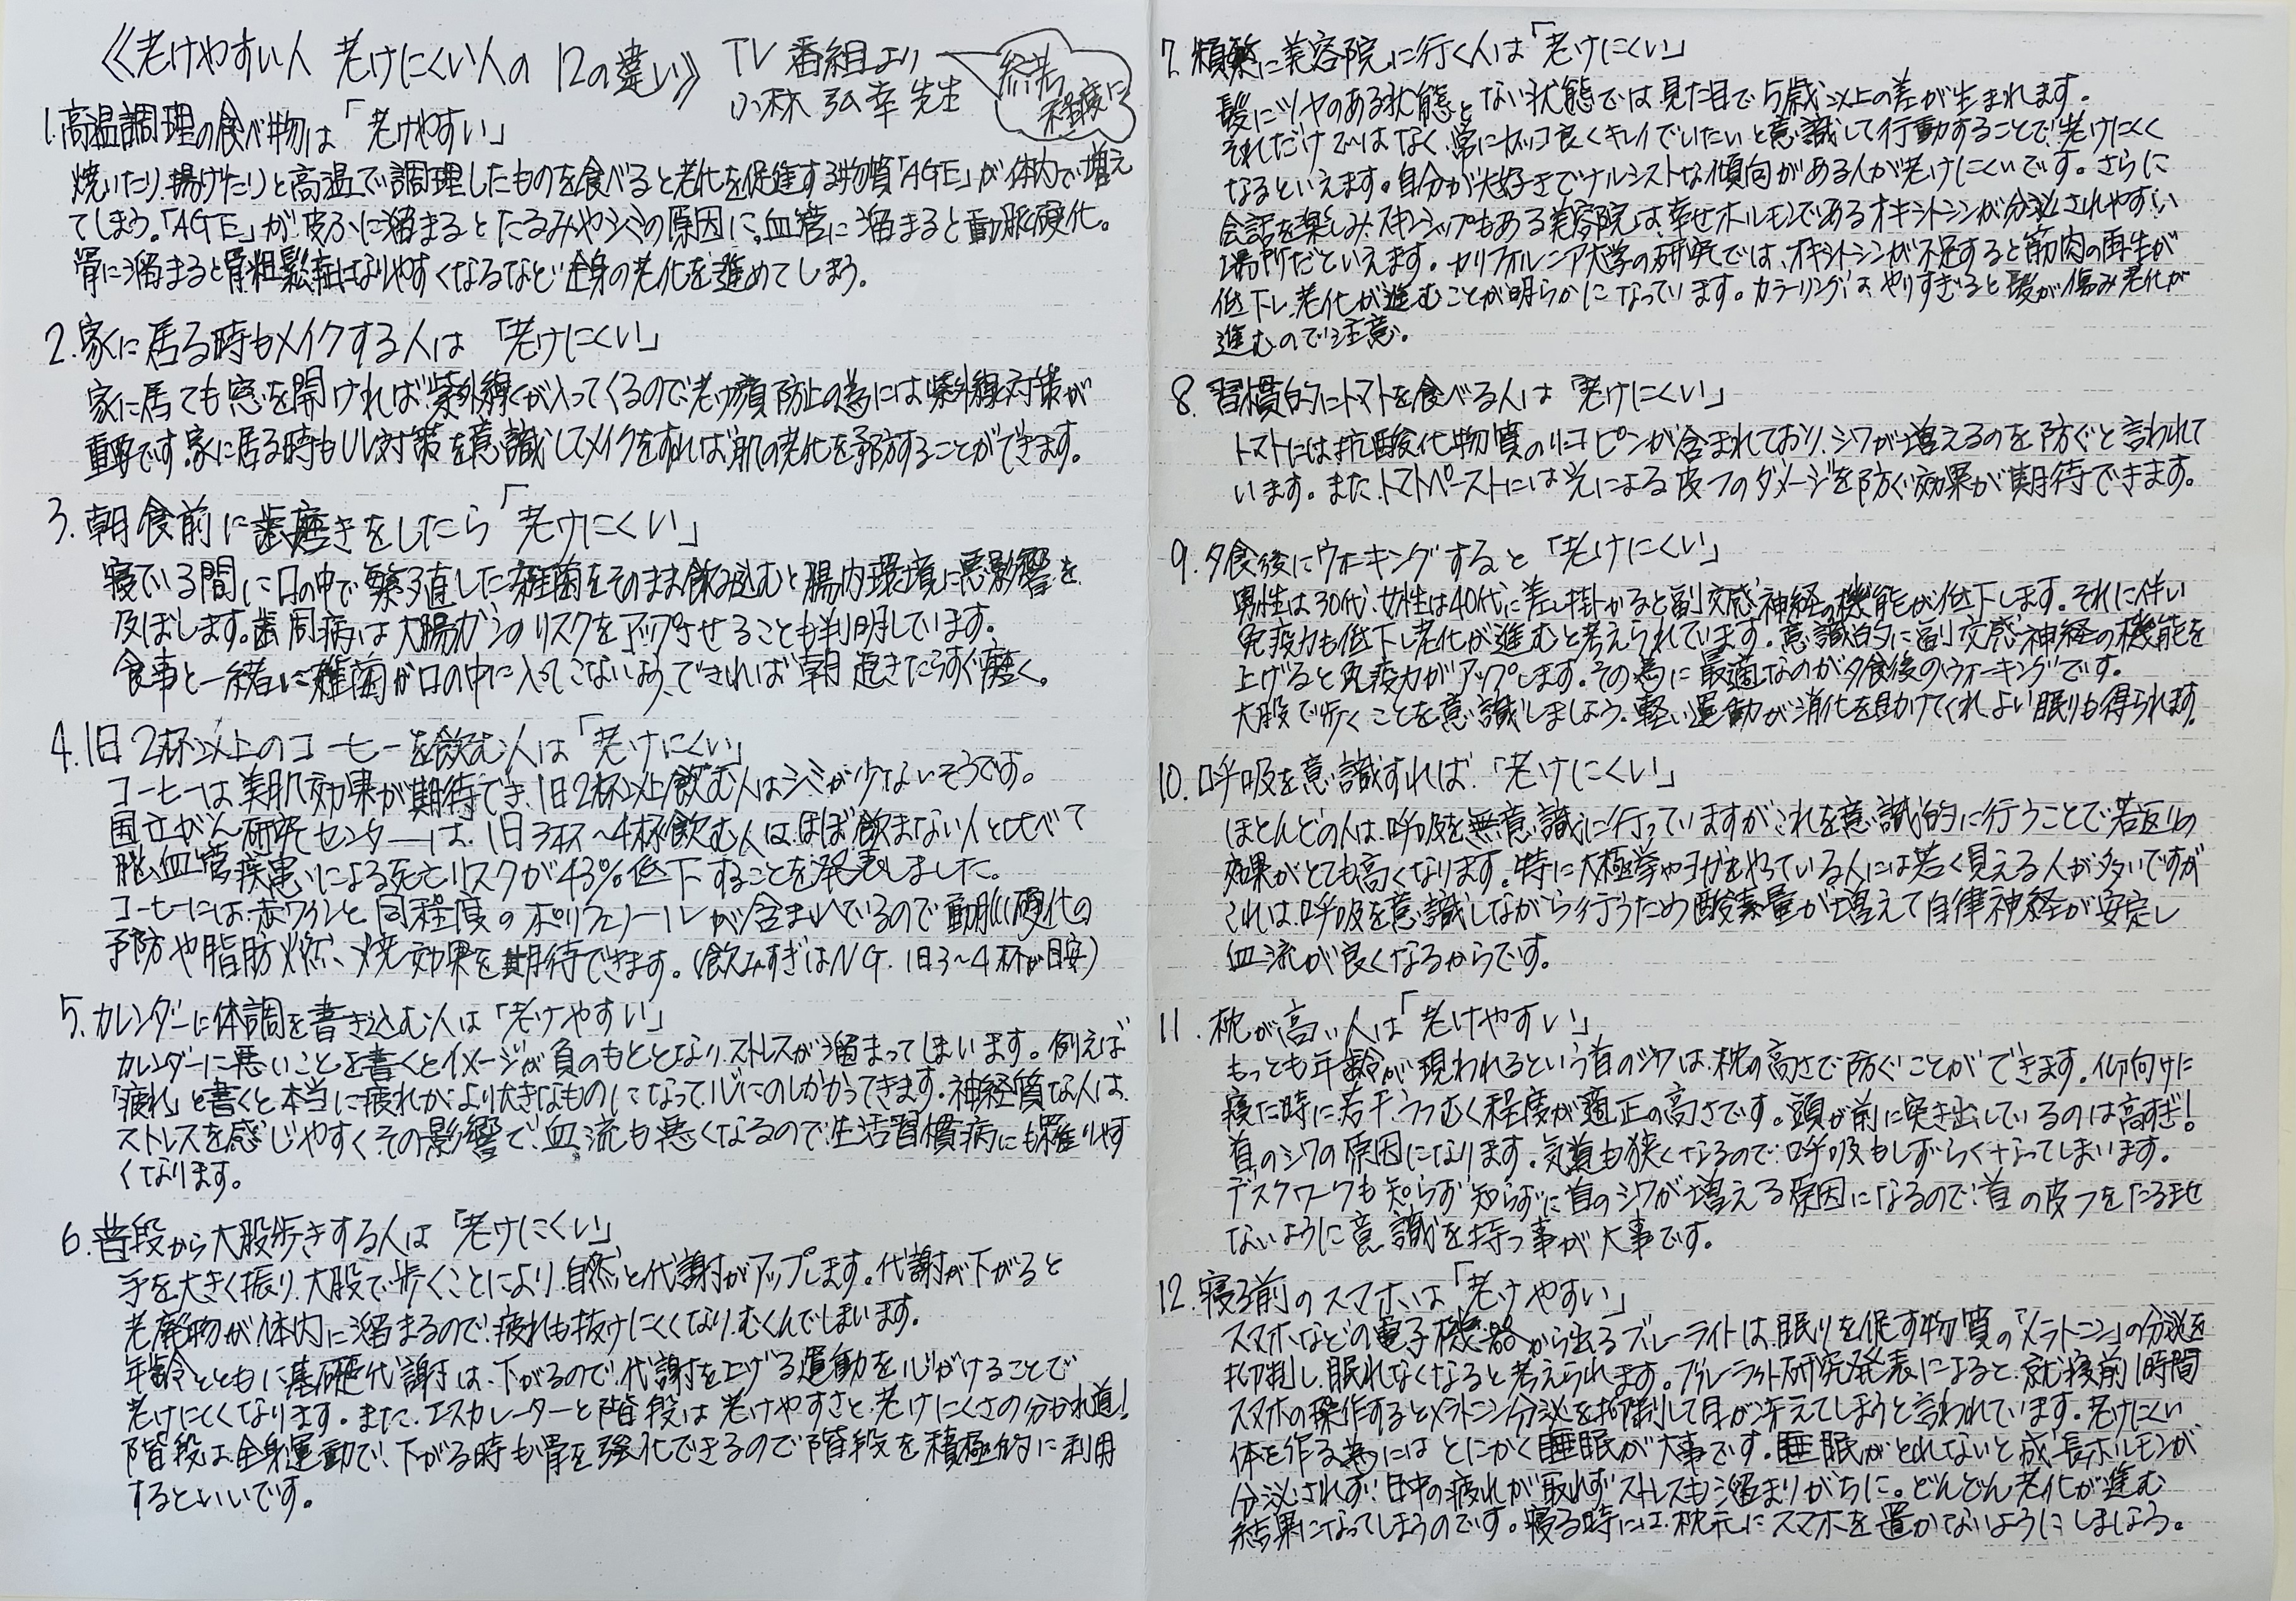 《老けやすい人 老けにくい人の 12の違い》
TV 番組より
小林 弘幸 先生
程度に
1.高温調理の食べ物は「老けやすい」
焼いたり、揚げたりと高温で調理したものを食べると老化を促進する物質「AGE」が体内で増え
てしまう。「AGE」が皮ふに溜まるとたるみやシミの原因に。血管に溜まると動脈硬化。
骨に溜まると骨粗鬆症になりやすくなるなど全身の老化を進めてしまう。
2.家に居る時もメイクする人は「老けにくい」
家に居ても窓を開ければ紫外線が入ってくるので、老け顔防止の為には紫外線対策が
重要です。家に居る時もUV対策を意識してメイクをすれば、肌の老化を予防することができます。
3.朝食前に歯磨きをしたら「老けにくい」
寝ている間に口の中で繁殖した雑菌をそのまま飲み込むと腸内環境に悪影響を
及ぼします。歯周病は大腸ガンのリスクをアップさせることも判明しています。
食事と一緒に雑菌が口の中に入ってこないよう、できれば朝起きたらすぐ磨く。
4.1日2杯以上のコーヒーを飲む人は「老けにくい」
コーヒーは美肌効果が期待でき、1日2杯以上飲む人はシミが少ないそうです。
国立がん研究センターは、1日3杯~4杯飲む人は、ほぼ飲まない人と比べて
脳血管疾患による死亡リスクが43%低下することを発表しました。
コーヒーには、赤ワインと同程度のポリフェノールが含まれているので動脈硬化の
予防や脂肪燃焼効果を期待できます。(飲みすぎはNG.1日3~4杯が目安)
5.カレンダーに体調を書き込む人は「老けやすい」
カレンダーに悪いことを書くとイメージが負のもととなり、ストレスが溜まってしまいます。例えば
「疲れ」と書くと本当に疲れがより大きなものになって心にのしかかってきます。神経質な人は、
ストレスを感じやすく、その影響で、血流も悪くなるので生活習慣病にも罹りやす
くなります。
6.普段から大股歩きする人は「老けにくい」
手を大きく振り、大股で歩くことにより、自然と代謝がアップします。代謝が下がると
老廃物が体内に溜まるので、疲れも抜けにくくなり、むくんでしまいます。
年齢とともに基礎代謝は、下がるので、代謝を上げる運動を心がけることで
老けにくくなります。また、エスカレーターと階段は老けやすさと、老けにくさの分かれ道!
階段は、全身運動で、下がる時も骨を強化できるので階段を積極的に利用
するといいです。
7.頻繁に美容院に行く人は「老けにくい」
髪にツヤのある状態とない状態では見た目で5歳以上の差が生まれます。
それだけではなく、常にカッコ良くキレイでいたいと意識して行動することで、老けにくく
なるといえます。自分が大好きでナルシストな傾向がある人が老けにくいです。さらに
会話を楽しみ、スキンシップもある美容院は、幸せホルモンであるオキシトシンが分泌されやすい
場所だといえます。カリフォルニア大学の研究では、オキシトシンが不足すると筋肉の再生が
低下し、老化が進むことが明らかになっています。カラーリングは、やりすぎると髪が傷み老化が
進むので注意。
8.習慣的にトマトを食べる人は「老けにくい」
トマトには、抗酸化物質のリコピンが含まれており、シワが増えるのを防ぐと言われて
います。また、トマトペーストには光による皮フのダメージを防ぐ効果が期待できます。
9.夕食後にウォーキングすると「老けにくい」
男性は30代、女性は40代に差し掛かると副交感神経の機能が低下します。それに伴い
免疫力も低下し老化が進むと考えられています。意識的に副交感神経の機能を
上げると免疫力がアップします。その為に最適なのが夕食後のウォーキングです。
大股で歩くことを意識しましょう。軽い運動が消化を助けてくれ、よい眠りも得られます。
10.呼吸を意識すれば「老けにくい」
ほとんどの人は、呼吸を無意識に行っていますがこれを意識的に行うことで若返りの
効果がとても高くなります。特に太極拳やヨガをやっている人には若く見える人が多いですが
これは、呼吸を意識しながら行うため酸素量が増えて自律神経が安定し
血流が良くなるからです。
11.枕が高い人は「老けやすい」
もっとも年齢が現われるという首のシワは、枕の高さで防ぐことができます。仰向けに
寝た時に若干うつむく程度が適正の高さです。頭が前に突き出しているのは高すぎ!
首のシワの原因になります。気道も狭くなるので、呼吸もしずらくなってしまいます。
デスクワークも知らず知らずに首のシワが増える原因になるので、首の皮フをたるませ
ないように意識を持つ事が大事です。
12.寝る前のスマホは「老けやすい」
スマホなどの電子機器から出るブルーライトは、眠りを促す物質の「メラトニン」の分泌を
抑制し、眠れなくなると考えられます。ブルーライト研究発表によると、就寝前1時間
スマホの操作するとメラトニン分泌を抑制して目が冴えてしまうと言われています。老けにくい
体を作る為にはとにかく睡眠が大事です。睡眠がとれないと成長ホルモンが
分泌されず、日中の疲れが取れずストレスも溜まりがちに。どんどん老化が進む
結果になってしまうのです。寝る時には、枕元にスマホを置かないようにしましょう。